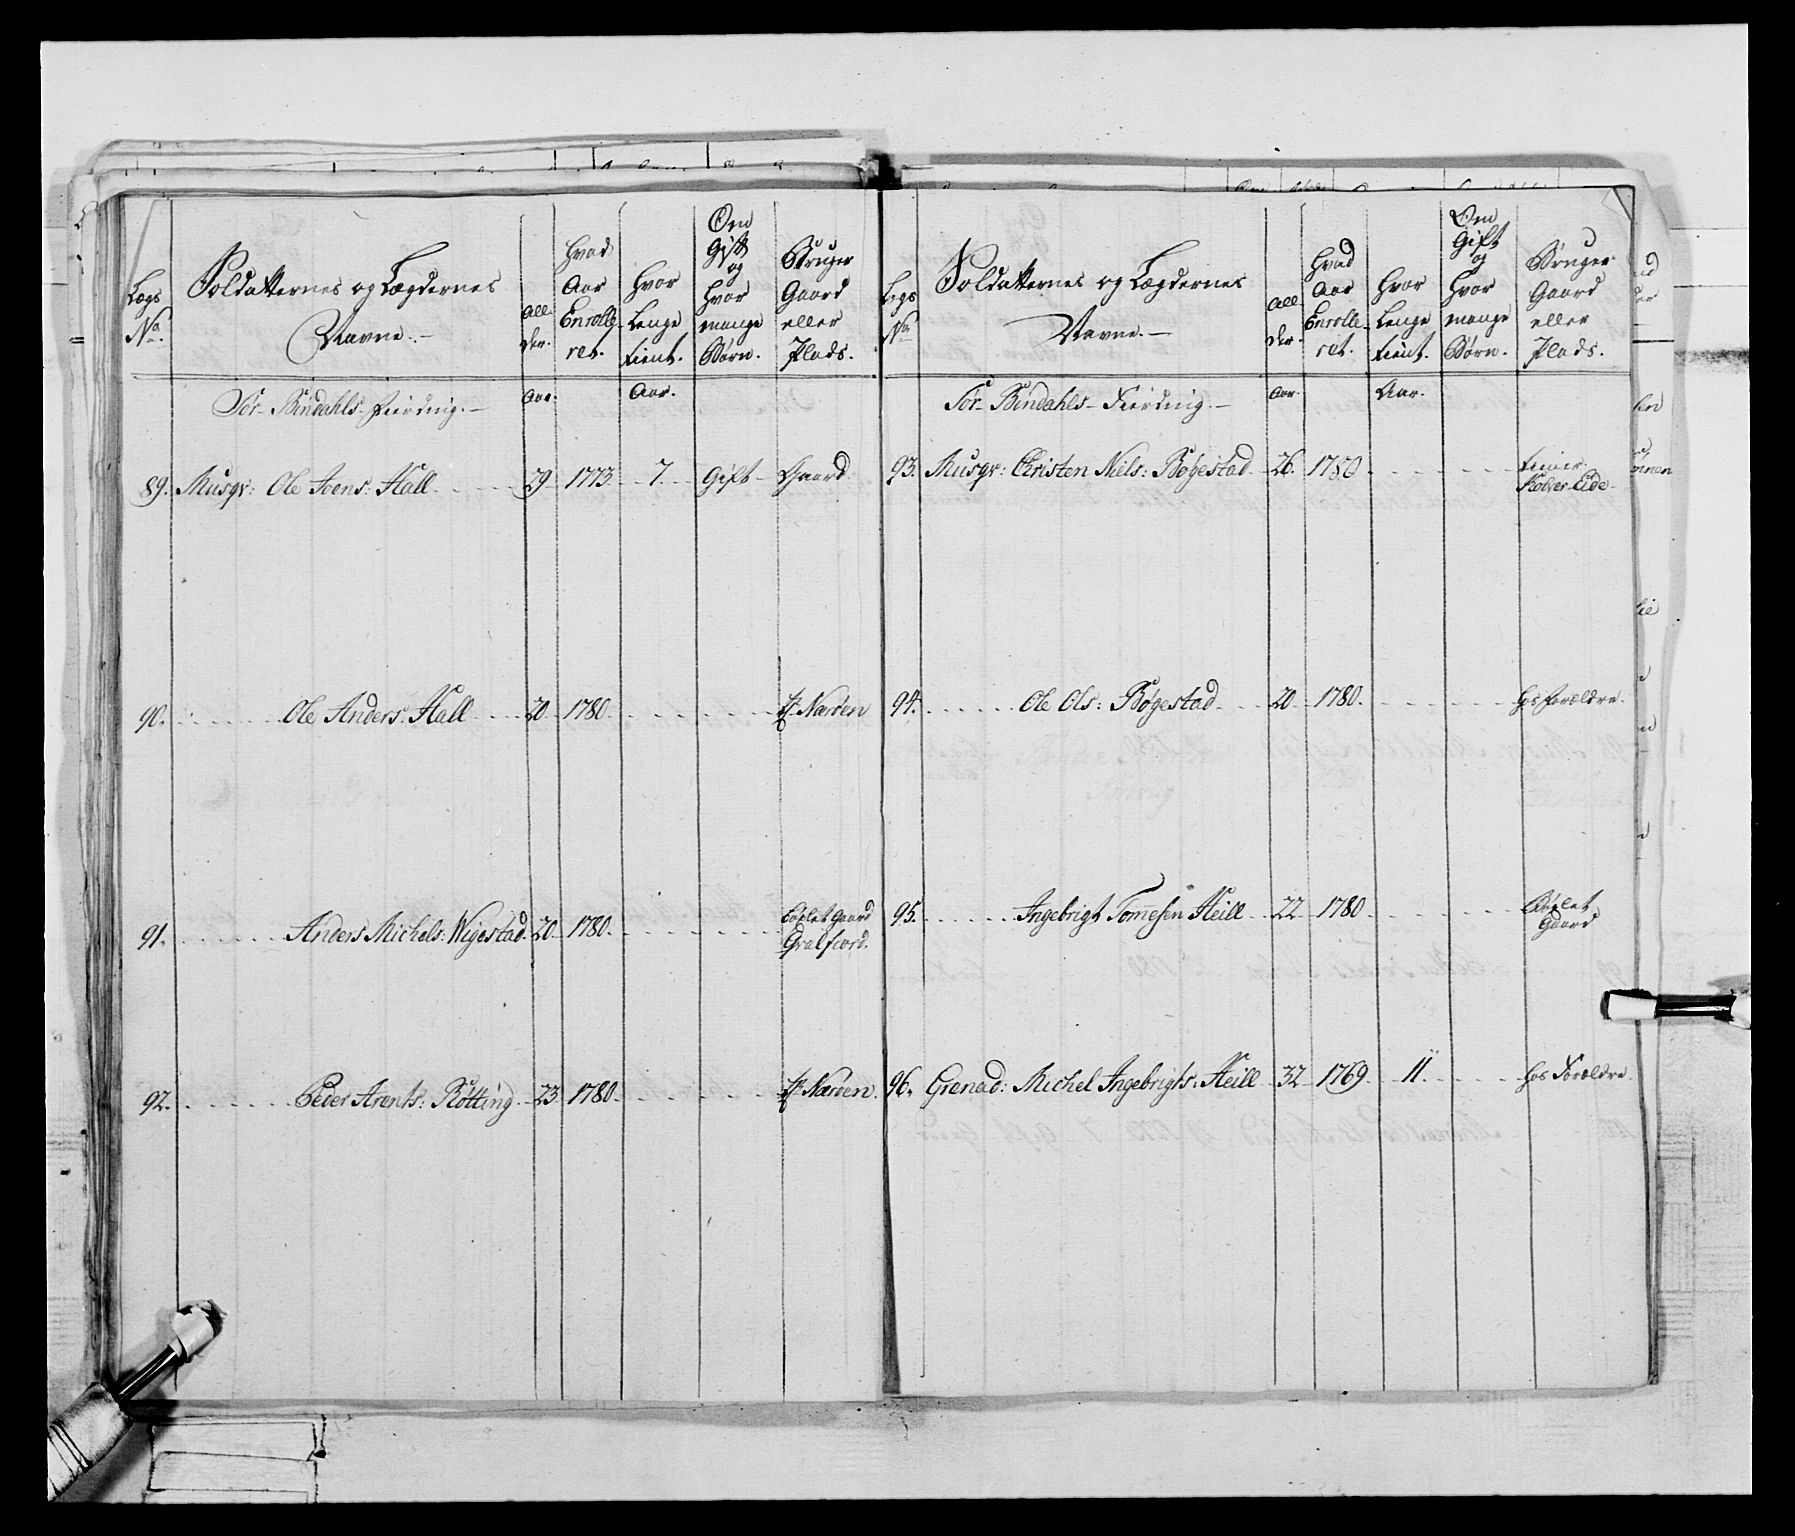 Legs No. Soldatternes og Lægdernes Navne. Aller. Hvad Aar Enrolleret. Hvor Lenge tient. Om Gift og hvor mange Børn. Bruger Gaard eller Plads.
Sør-Bindahls-Fierding. Aar. Aar.
89. Musqr: Ole Joens: Hall 29 1773 7. Gift Gaard
90. Ole Anders: Hall 20 1780 Nærøen
91. Anders Michels: Wigestad 20 1780. Gaard
92. Peder Arents: Røtting 23 1780. Nærøen.
Legs No. Soldatternes og Lægdernes Navne. Aller. Hvad Aar Enrolleret. Hvor Lenge tient. Om Gift og hvor mange Børn. Bruger Gaard eller Plads.
Sør-Bindahls-Fierding. Aar. Aar.
93. Musqr: Christen Niels: Bøgestad 26. 1780 tiener Kolver-Eide
94. Ole Ols: Bøgestad 20 1780. hos Forældre.
95. Ingebrigt Tomesen Heill 22 1780 Gaard
96. Grenad: Michel Ingebrigts: Heill 32 1769 11. hos Forældre.